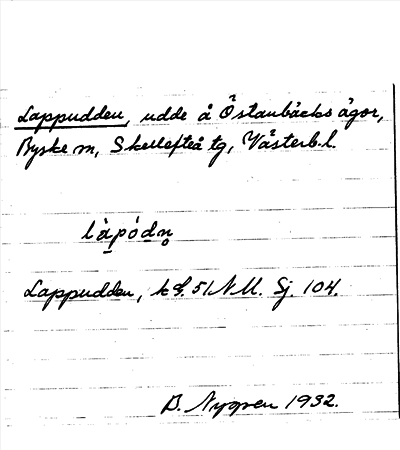 Lappudden, udde å Östanbäcks ägor,
Byske sn, Skellefteå tg, Västerb. l.
làpódn̥
Lappudden, k bl. 51 N.V. Sj. 104.
B. Nygren 1932.